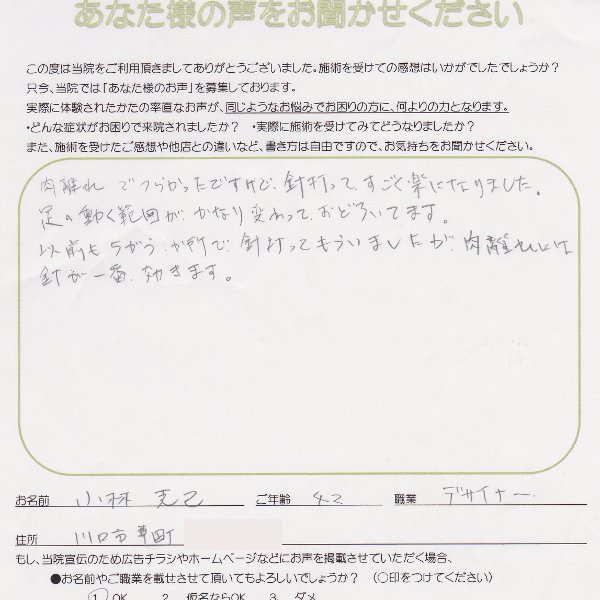 あなた様の声をお聞かせください
この度は当院をご利用頂きましてありがとうございました。施術を受けての感想はいかがでしたでしょうか?
只今、当院では「あなた様のお声」を募集しております。
実際に体験されたかたの率直なお声が、同じようなお悩みでお困りの方に、何よりの力となります。
・どんな症状がお困りで来院されましたか? ・実際に施術を受けてみてどうなりましたか?
また、施術を受けたご感想や他店との違いなど、書き方は自由ですので、お気持ちをお聞かせください。
肉離れでつらかったですけど、針打って、すごく楽になりました。
足の動く範囲が、かなり変わって、おどろいてます。
以前もちがう、か所で、針打ってもらいましたが、肉離れには
針が一番、効きます。
お名前 小林 克己 ご年齢 42 職業 デザイナー
住所 川口市 町
もし、当院宣伝のため広告チラシやホームページなどにお声を掲載させていただく場合、
●お名前やご職業を載せさせて頂いてもよろしいでしょうか? (○印をつけてください)
1. OK 2. 仮名ならOK 3. ダメ